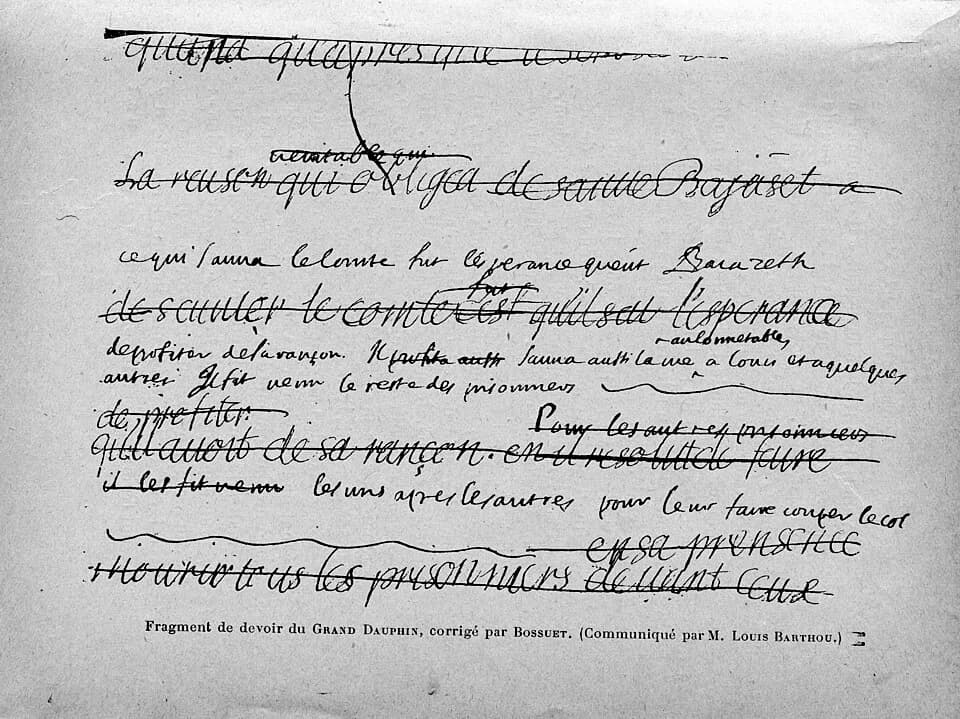 quand qu'apres que
veritable qui
La reuson qui obligea de sauue Bajaset a
ce qui sauua le comte fut l'esperance qu'eut Baiazeth
fut
de sauuer le comte c'est qu'il sau l'esperance
au connetable,
de profiter de sa rançon. Il profita aussi sauua aussi la vie a Couci et a quelques
autres Il fit venir le reste des prisonniers
de profiter
Pour les autres prisonniers
qu'il auoit de sa rançon. en il resolut de faire
il les fit venir les uns apres les autres pour leur faire couper le col
en sa presence
mourir tous les prisonniers deuant ceux
Fragment de devoir du GRAND DAUPHIN, corrigé par BOSSUET. (Communiqué par M. LOUIS BARTHOU.)